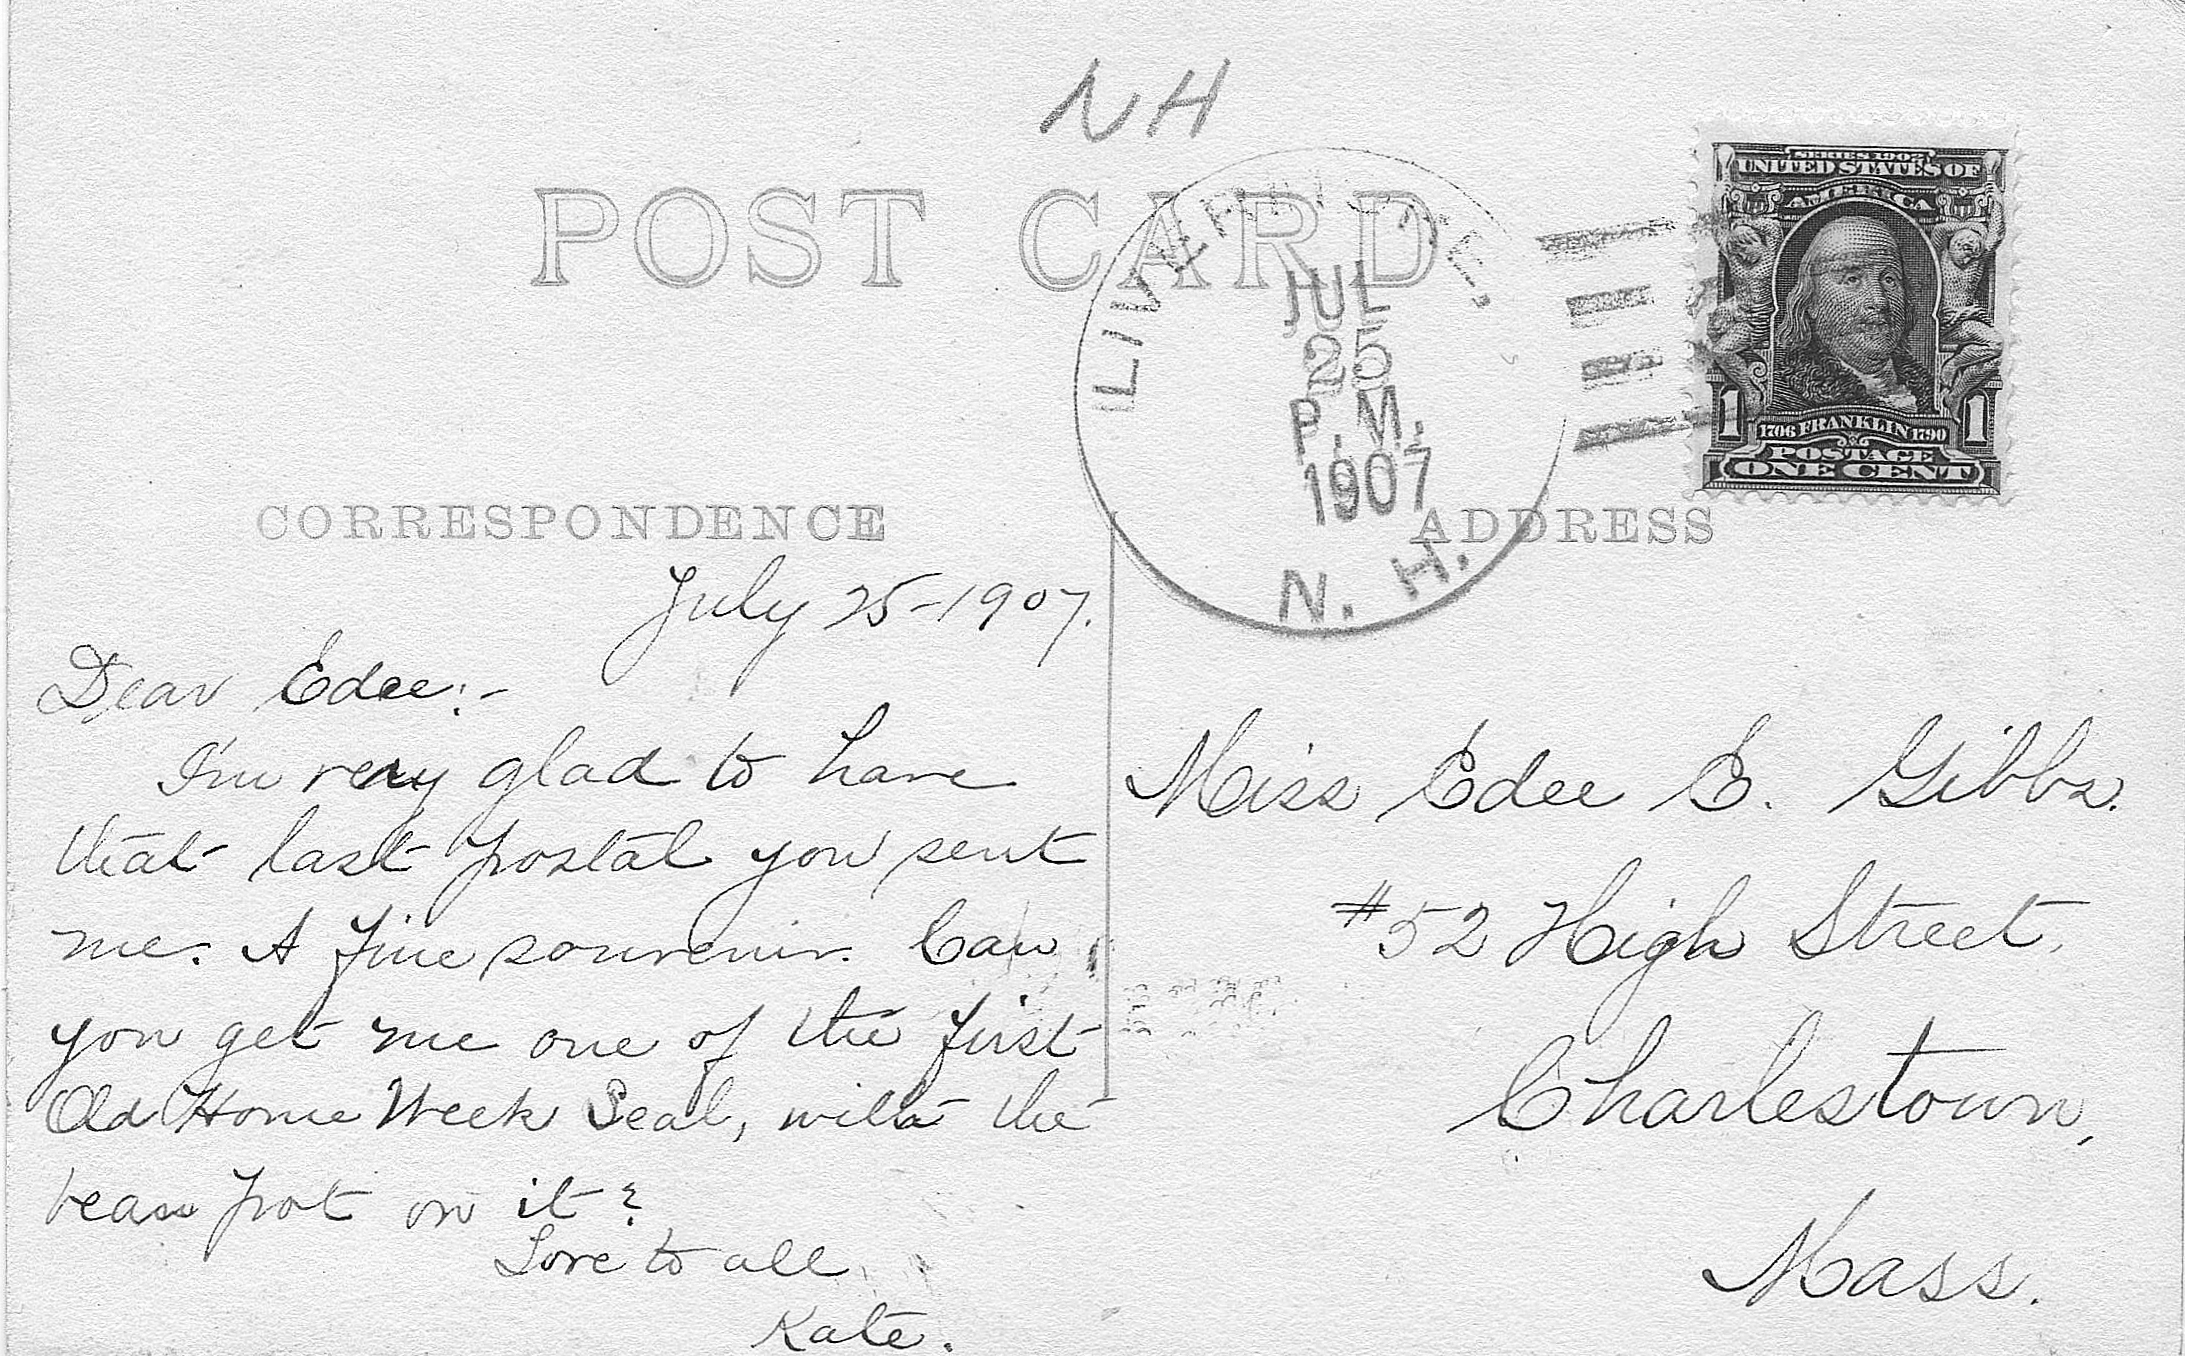 NH
POST CARD
LIVERMORE.
JUL
25
P.M.
1907
N. H.
SERIES 1902
UNITED STATES OF
AMERICA
1 1706 FRANKLIN 1790 1
POSTAGE
ONE CENT
CORRESPONDENCE
ADDRESS
July 25-1907.
Dear Edee:-
I'm very glad to have
that last postal you sent
me. A fine souvenir. Can
you get me one of the first
Old Home Week Seal, with the
bean pot on it?
Love to all
Kate.
Miss Edee E. Gibbs.
#52 High Street,
Charlestown,
Mass.